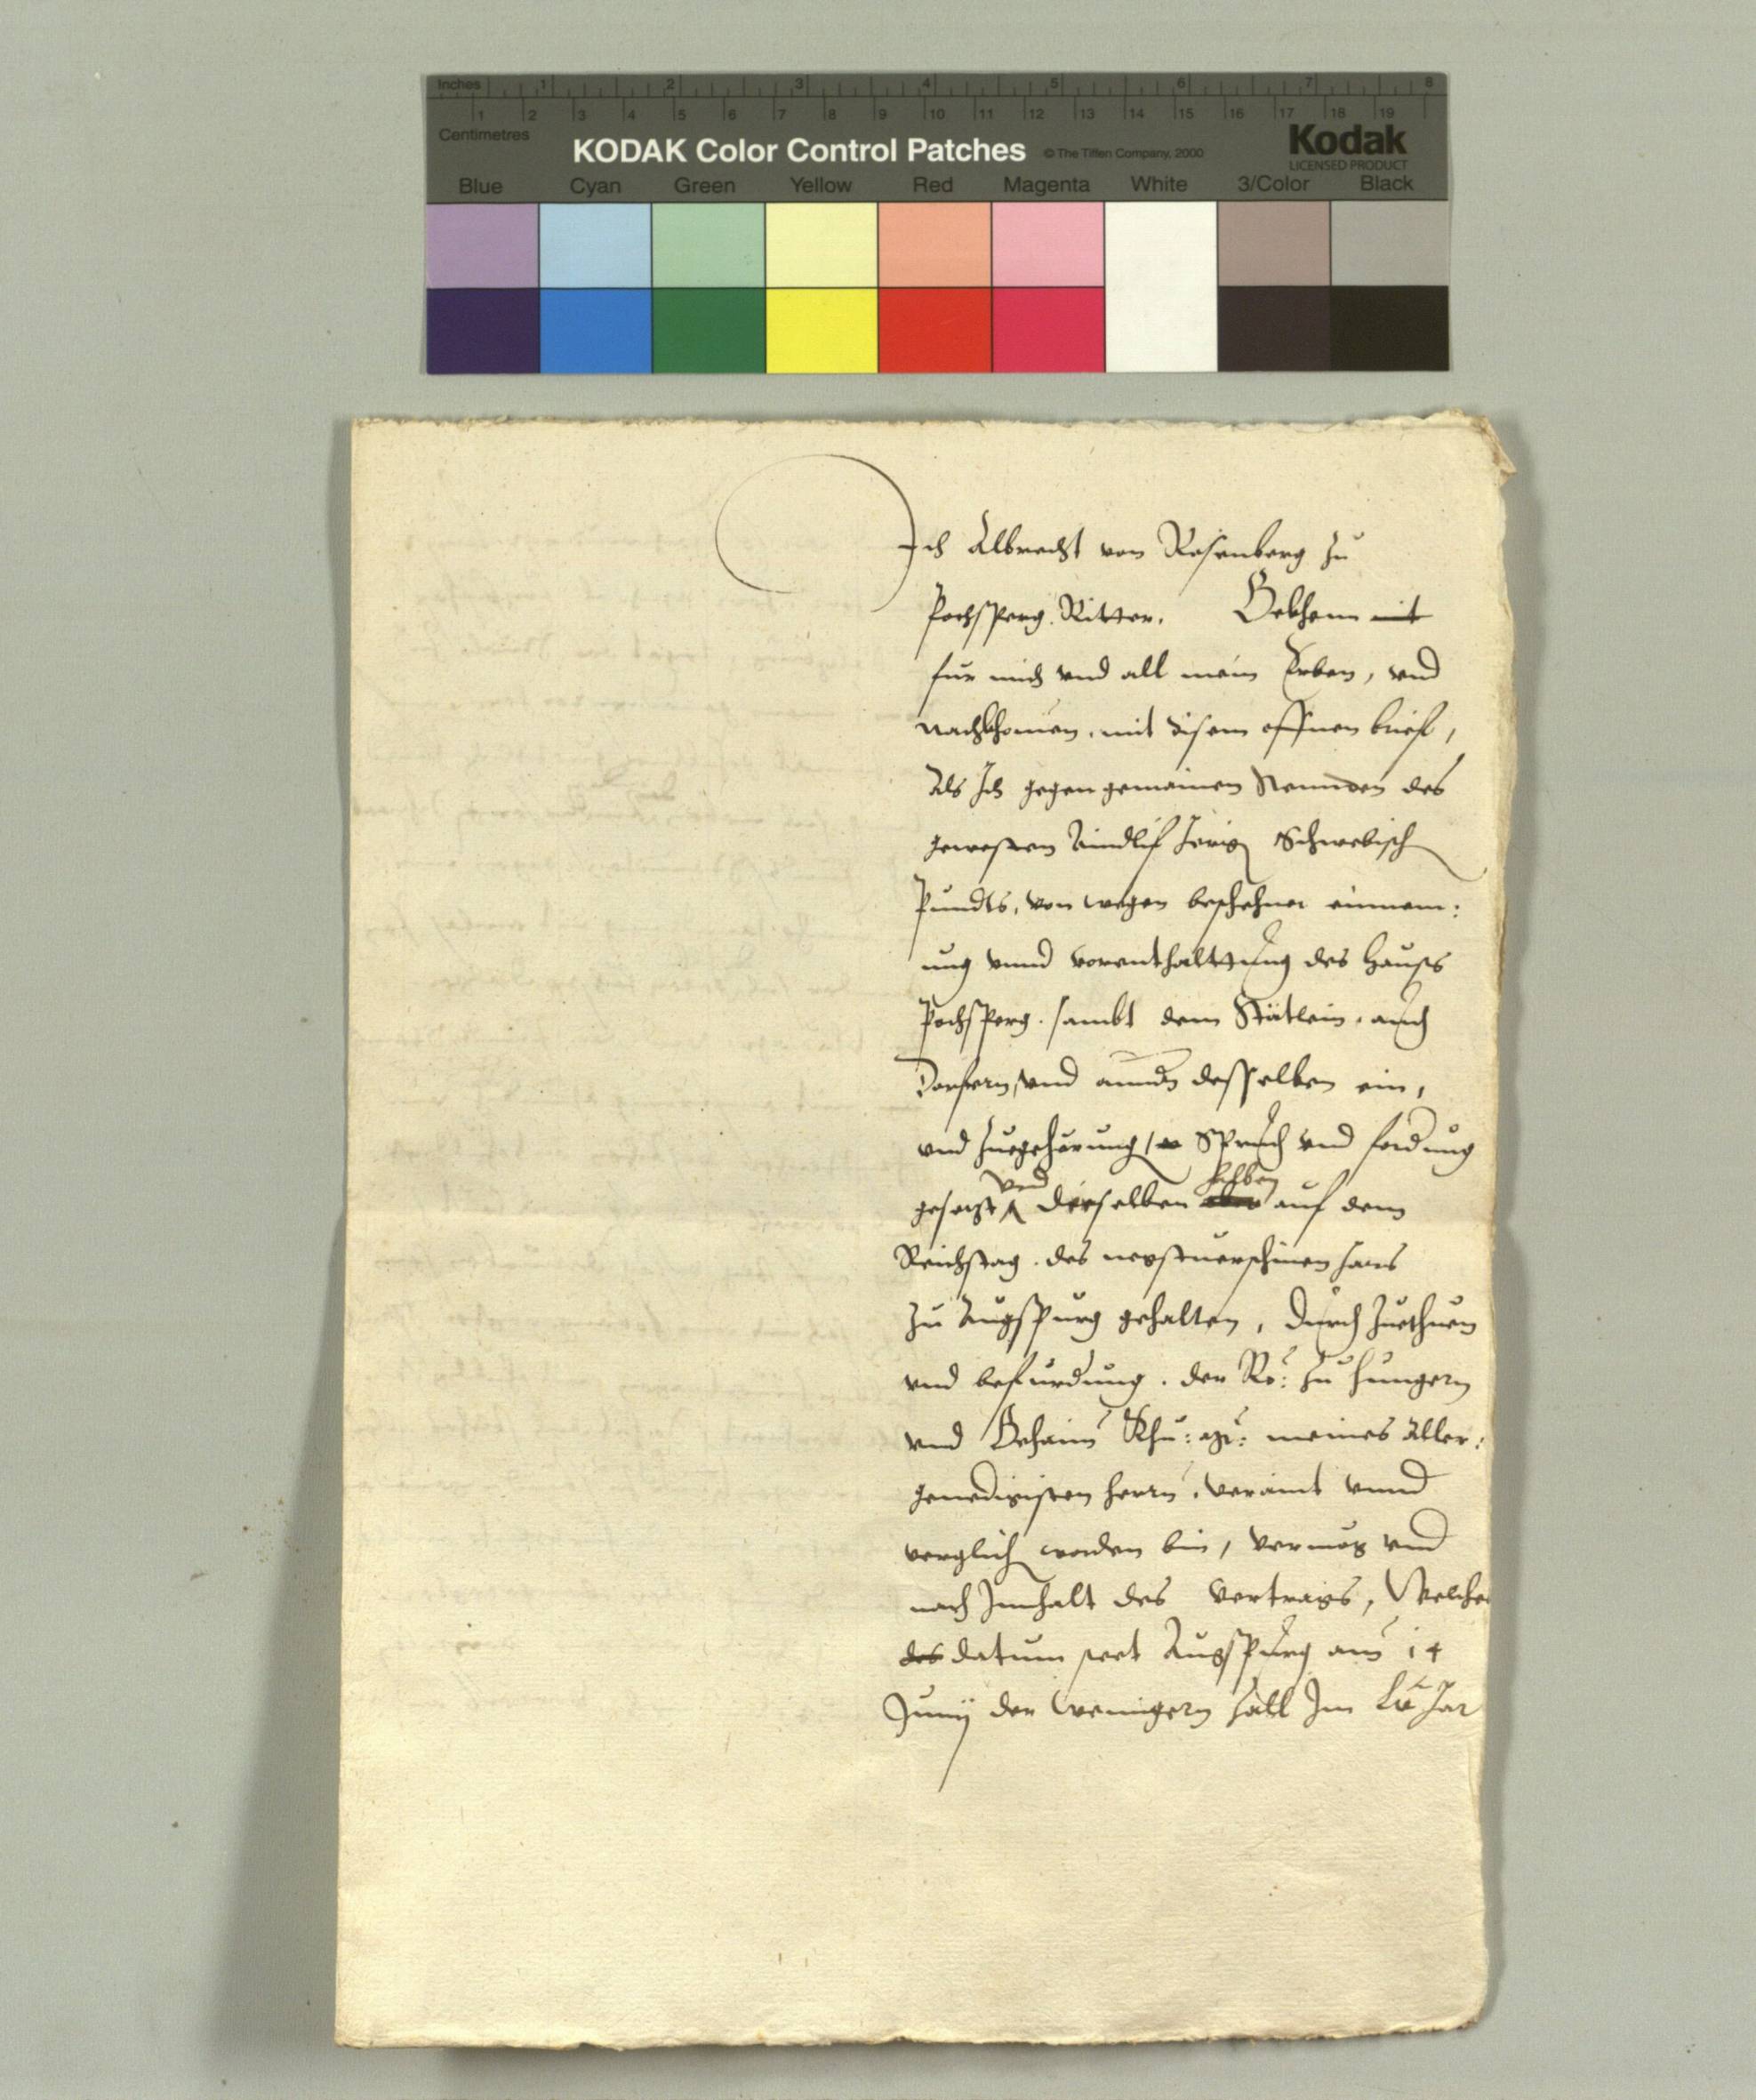 Inches 1 2 3 4 5 6 7 8
1 2 3 4 5 6 7 8 9 10 11 12 13 14 15 16 17 18 19
Centimetres
KODAK Color Control Patches © The Tiffen Company, 2000 Kodak
LICENSED PRODUCT
Blue Cyan Green Yellow Red Magenta White 3/Color Black
Ich Albrecht von Rosenberg zu
Pochsperg. Ritter. Bekhenn mit
fur mich vnd all mein Erben, vnd
nachkhomen, mit disem offnen brief,
Als Ich gegen gemainen Stennden des
gewesten Aindlif Jerig Schwebisch
Pundts, von wegen beschehner einnem:
ung vnnd vorenthalttung des Hauss
Pochsperg. sambt dem Stätlein, auch
Dorfern, vnd anndn desselben ein,
vnd zuegehörung, Spruch vnd fordrung
gesetzt vnd derselben halben auf dem
Reichstag. des negstuerschinen Jars
zu Augspurg gehalten, durch zuethuen
vnd befurdrung. der Rö: zu Hungern
vnd Behaim Khu: mt: meines Aller:
genedigisten herrn, veraint vnnd
verglich worden bin, vermög vnd
nach Innhalt des Vertrags, Welches
des datum steet Augspurg am 14
Junij der wenigern Zall Im Lv Jar